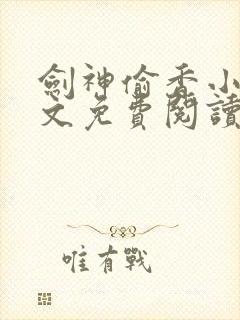 劍神偷香小
文免費閱讀
唯有戰